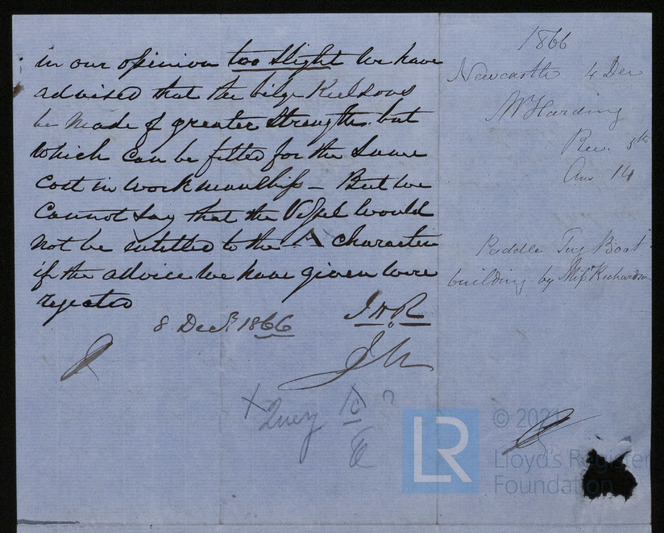 in our opinion too slight We have
advised that the bilge Keelsons
be made of greater strength, but
which can be fitted for the same
cost in workmanship – But we
Cannot say that the Vessel would
not be intitled to the A character
if the advice we have given were
rejected
8 Decr. 1866
J.H.R.
X Query
1866
Newcastle 4 Dec
Mr Harding
Rec. 5th
Ans 14
Paddle Tug Boat
building by Messrs Richardson
LR
Lloyd's Register
Foundation